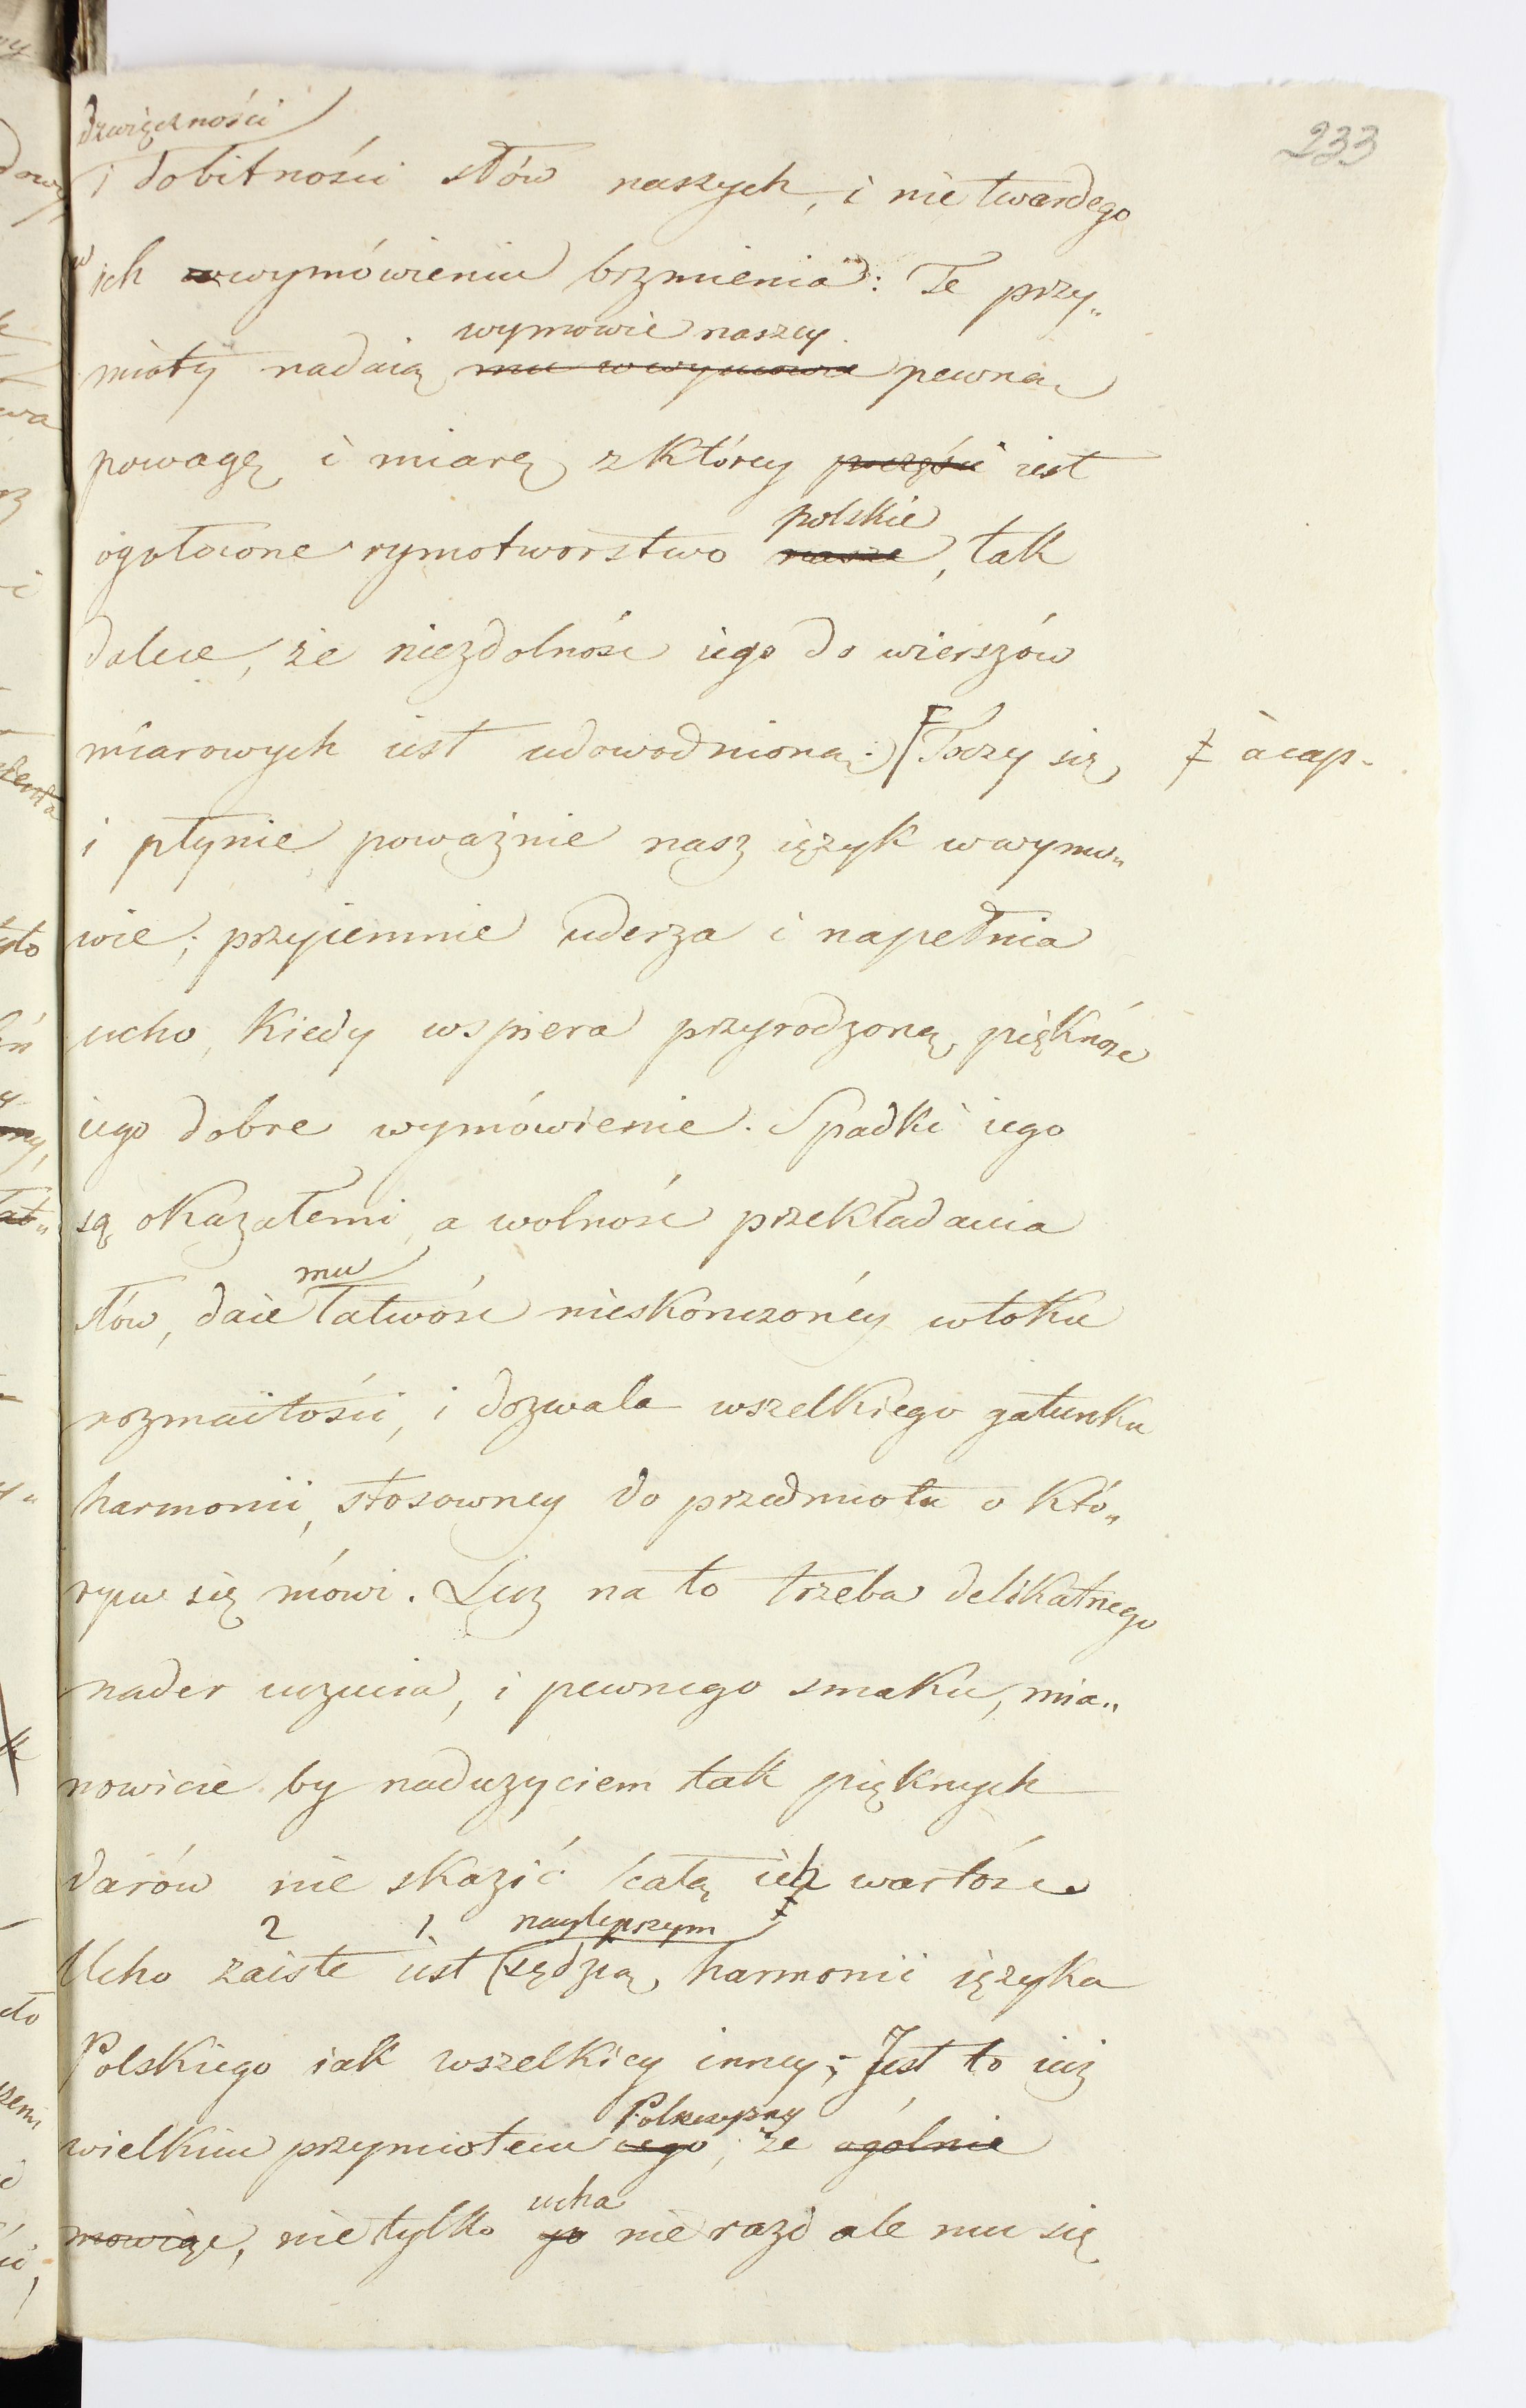 233
dzwięczności
i dobitności słów naszych, i nie twardego
w ich wymówieniu brzmienia: Te przy„
wymowie naszey
mioty nadaią mu w wymowie pewną
powagę i miarę z którey poczęści iest
polskie
ogołocone rymotworstwo nasze, tak
dalece, że niezdolność iego do wierszów
miarowych iest udowodnioną: Toczy się ‡ à cap.
i płynie poważnie nasz ięzyk w wymo„
wie; przyiemnie uderza i napełnia
ucho, kiedy wspiera przyrodzoną piękność
iego dobre wymówienie. Spadki iego
są okazałemi, a wolność przekładania
mu
słów, daie łatwość nieskończonéy w toku
rozmaitości, i dozwala wszelkiego gatunku
harmonii, stosowney do przedmiotu o któ„
rym się mówi. Lecz na to trzeba delikatnego
nader uczucia, i pewnego smaku, mia„
nowicie by nadużyciem tak pięknych
darów nie skazić całą ich wartość
2 1. naylepszym ‡
Ucho zaiste iest sędzią harmonii ięzyka
Polskiego iak wszelkiey inney; Jest to iuż
Polszczyzny
wielkim przymiotem iego, że ogólnie
ucha
mowiąc, nie tylko go nie razi ale mu się